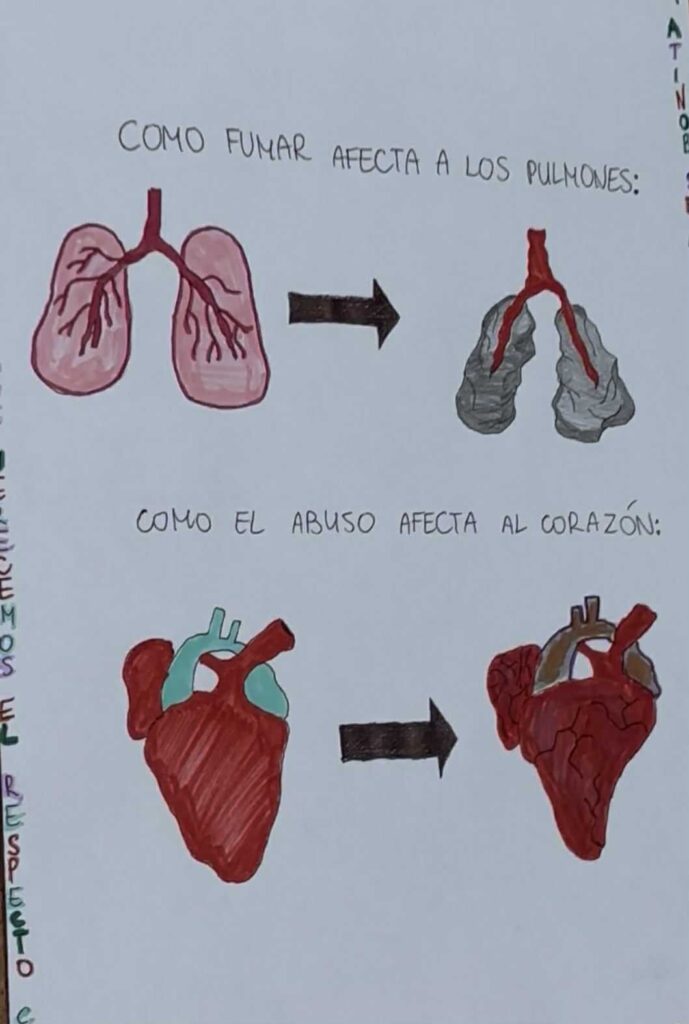 COMO FUMAR AFECTA A LOS PULMONES:
COMO EL ABUSO AFECTA AL CORAZÓN:
EL RESPECTO